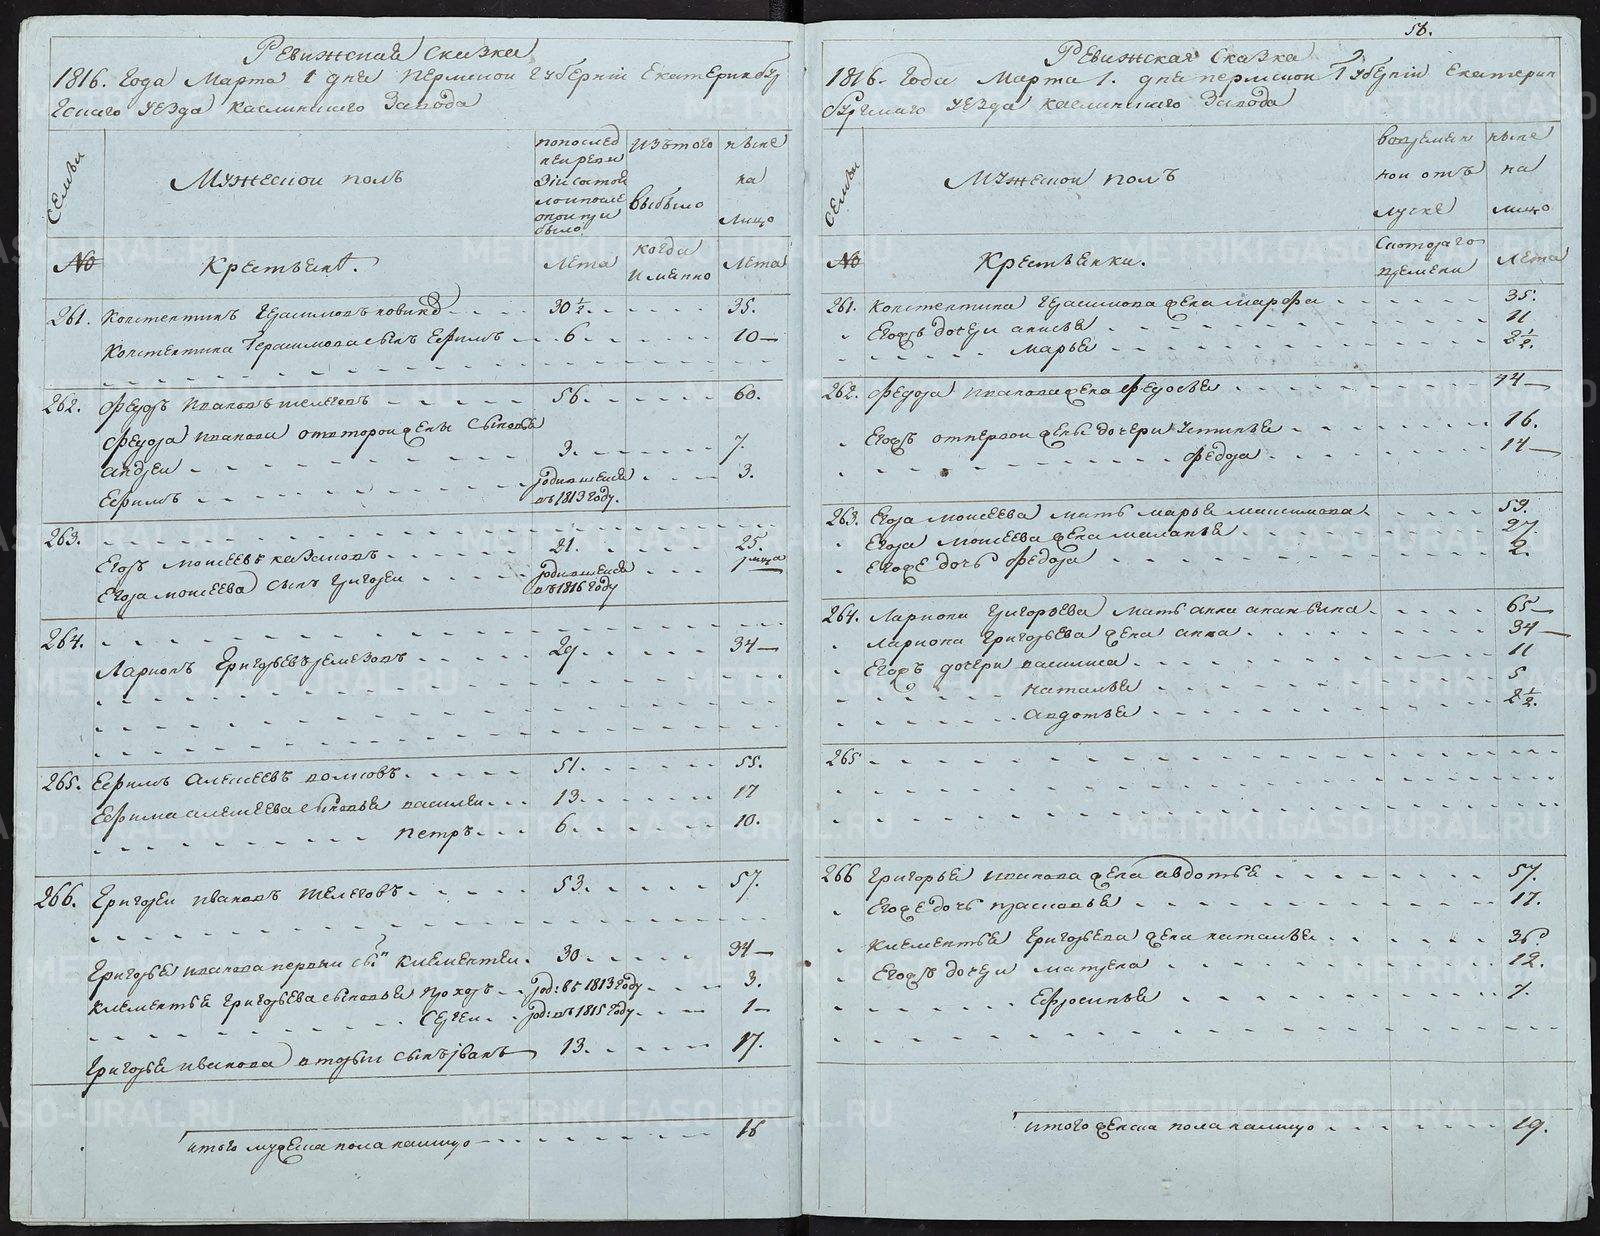 Ревижская Сказка
1816. Года Марта 1 дня Пермской Губерніи Екатеринбур
гскаго Уезда Каслинскаго Завода
Семьи
Мужеской полъ
попослед
ней реви
зіи состоя
ло и после
оной при
было
Изътого
выбыло
ныне
на
лицо
№
Крестьяне.
Лета
когда
именно
Лета
261. Константинъ Герасимовъ 30 ½ 35.
Константина Герасимова сынъ Ефимъ 6 10
262. Федоръ Ивановъ Шелеговъ 56. 60.
Федора Иванова отвторой жены сыновья
Андрей 3. 7.
Ефимъ родившейся 3.
въ 1813 году.
263.
Егоръ Моисеевъ Казаковъ 21. 25.
Егора Моисеева сынъ Григорей родившейся
въ 1816 году
264.
Ларионъ Григорьевъ 29. 34
265. Ефимъ Алексеевъ Волковъ 51. 55.
Ефима Алексеева сыновья Василей 13. 17
Петръ 6. 10.
266. Григорей Ивановъ Шелеговъ 53. 57.
Григорья Иванова первой сынъ Клементей. 30. 34
Клементья Григорьева сыновья Прохоръ род: въ 1813 году 3.
Сергей род: въ 1815 году 1
Григорья Иванова второй сынъ Иванъ 13. 17.
итого мужеска пола налицо 18
58.
Ревижская Сказка
1816. Года Марта 1. дня Пермской Губерніи Екатерин
бургскаго Уезда Каслинскаго Завода
Семьи
Мужеской полъ
вовремян
ной отъ
лучке
ныне
на
лицо
№
Крестьянки.
Скоторого
времени
Лета
261. Константина Герасимова жена Марфа 35.
Егожъ дочери Анисья 11
Марья 2 ½.
262. Федора Иванова жена Федосья 44
Егожъ отпервой жены дочери Устинья 16.
Федора 14
263. Егора Моисеева мать Марья Максимова 59.
Егора Моисеева жена Маланья 27.
Егоже дочь Федора 2.
264. Лариона Григорьева мать Анна Ананьина 65
Лариона Григорьева жена Анна 34
Егожъ дочери Василиса 11
Наталья 5
Авдотья 2 ½.
265
266 Григорья Иванова жена Авдотья 57.
Егоже дочь Прасковья 17.
Клементья Григорьева жена Наталья 36.
Егожъ дочери Матрена 12.
Ефросинья 7.
итого женска пола налицо 19.
METRIKI.GASO-URAL.RU